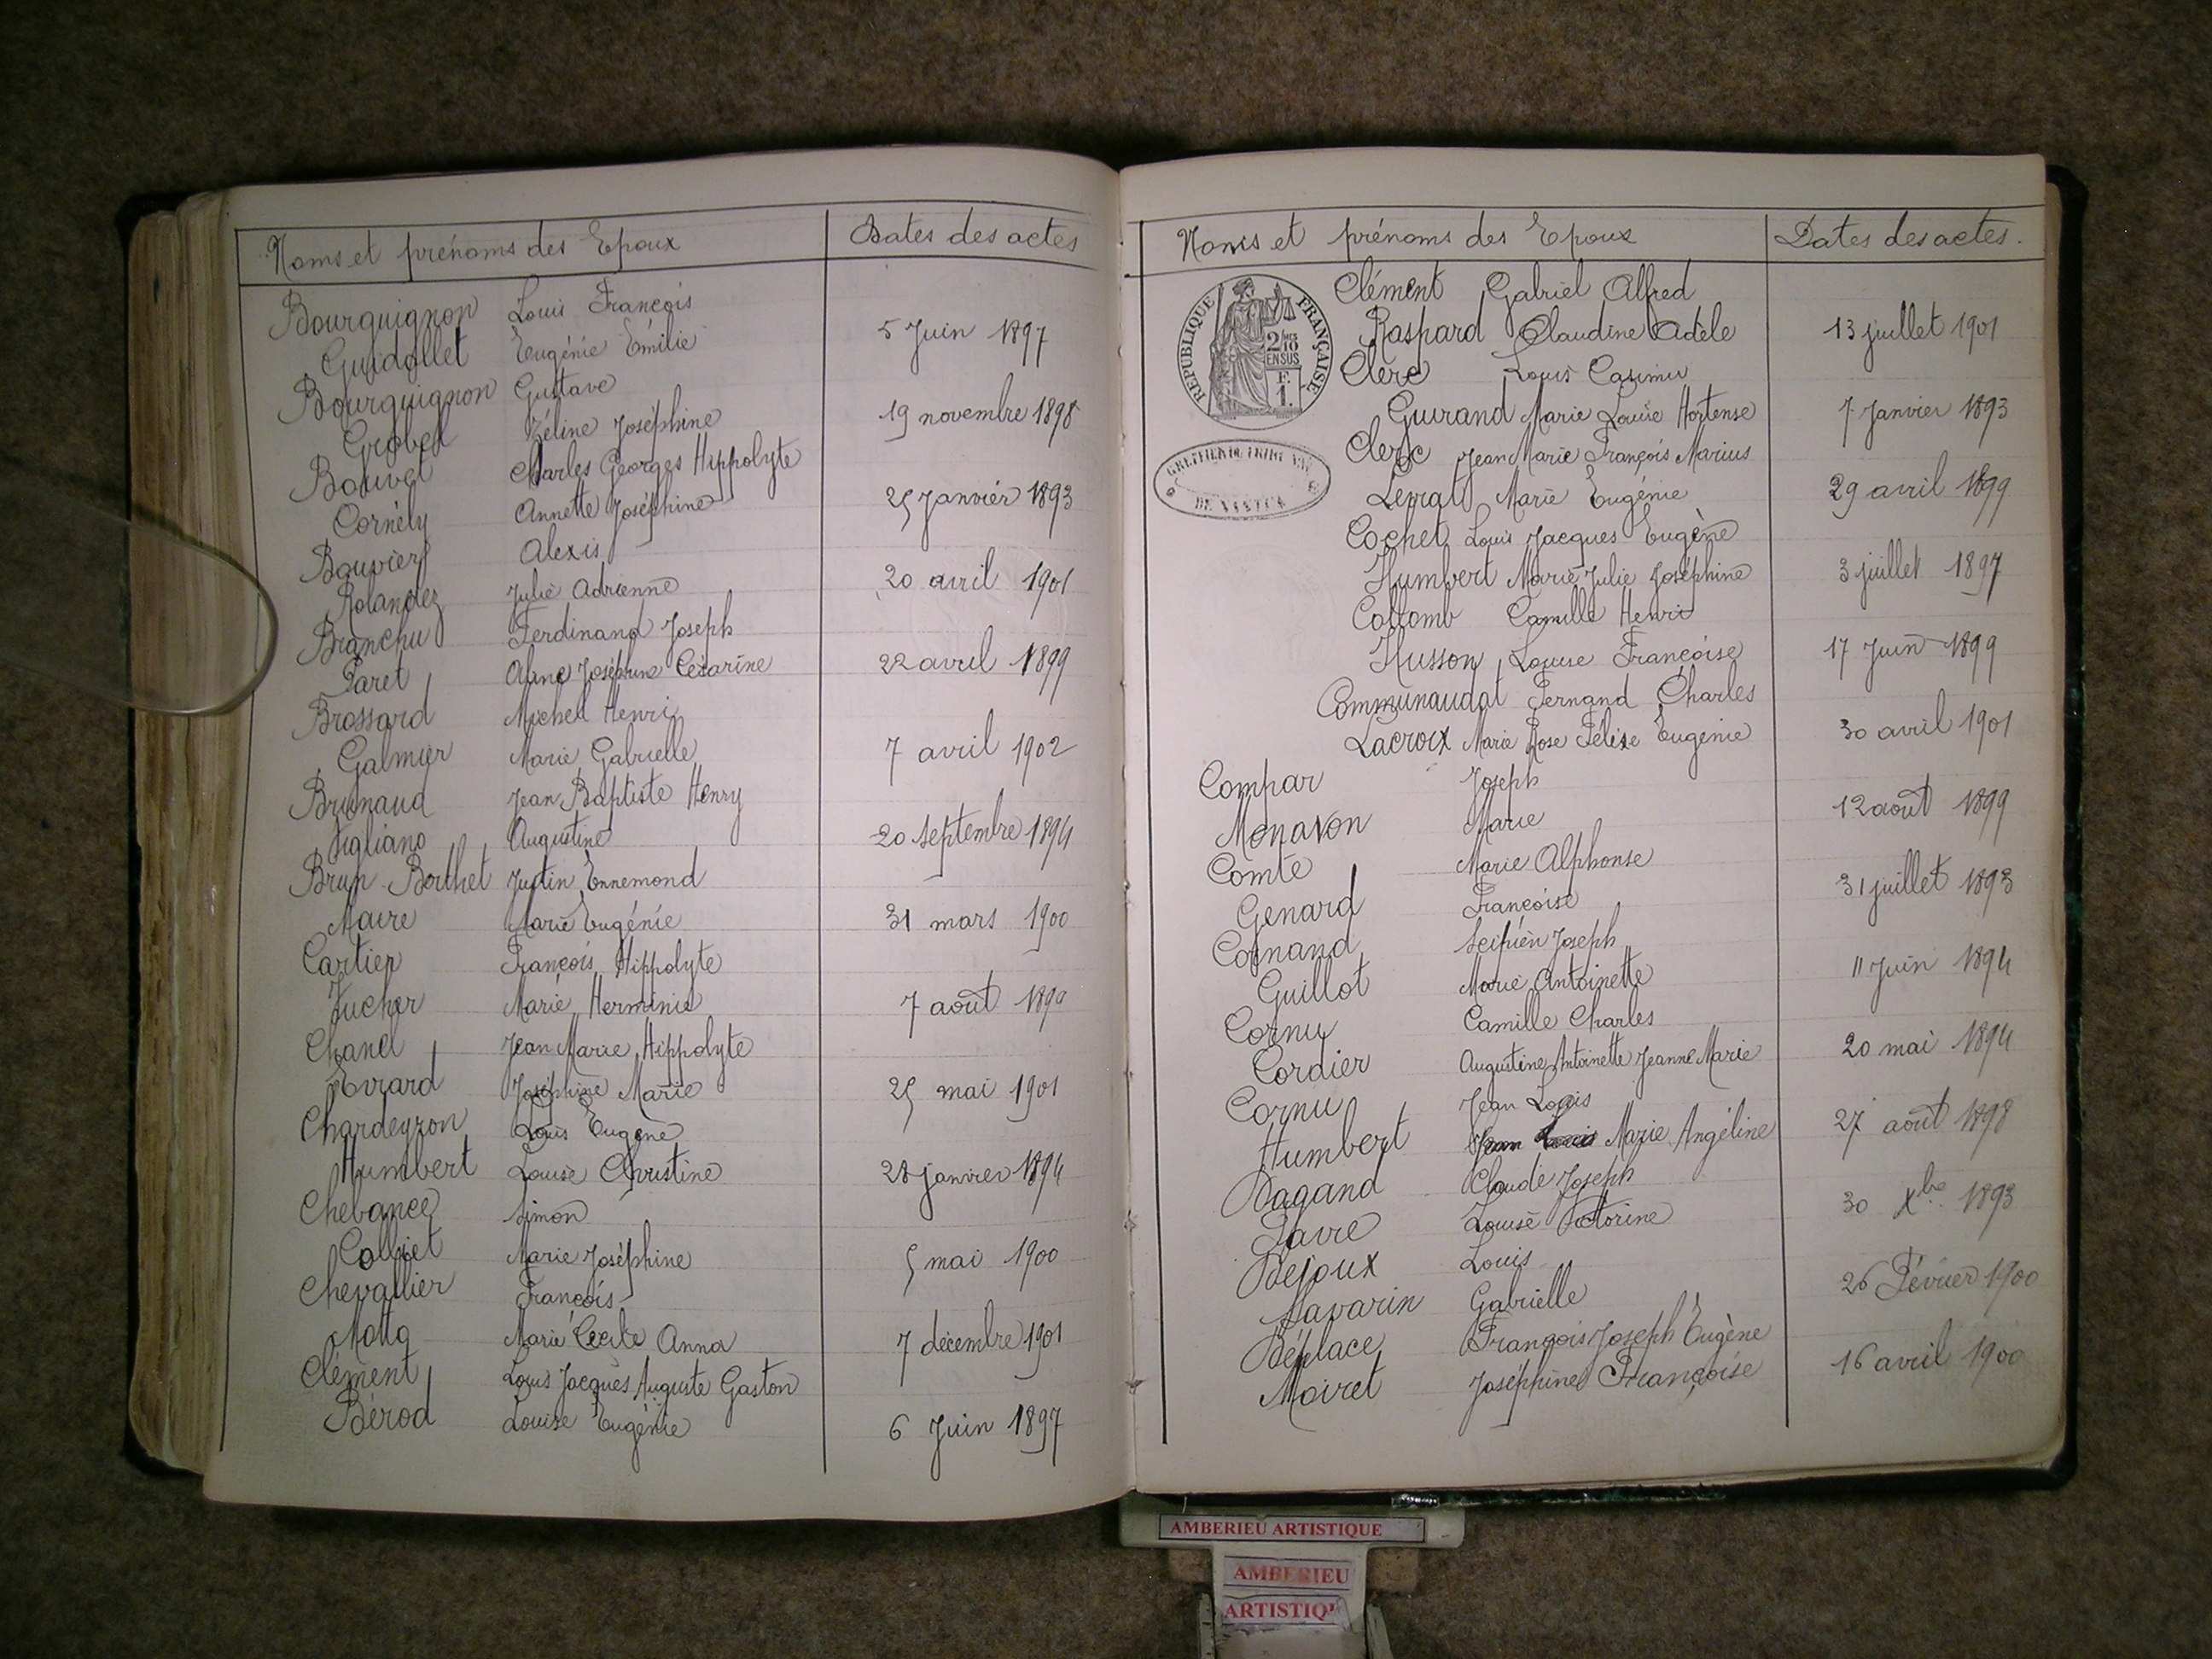 Noms et prénoms des Epoux Dates des actes
Bourguignon Louis François
Guidollet Eugénie Émilie 5 Juin 1897
Bourguignon Gustave
Grobel Zéline Joséphine 19 novembre 1898
Bouvet Charles Georges Hippolyte
Cornély Annette Joséphine 25 Janvier 1893
Bouvier Alexis
Rolandez Julie Adrienne 20 avril 1901
Branchu Ferdinand Joseph
Paret Joséphine Césarine 22 avril 1899
Brossard Michel Henri
Galmier Marie Gabrielle 7 avril 1902
Brunaud Jean Baptiste Henry
Vigliano Augustine 20 septembre 1894
Brun-Berthet Justin Ennemond
Maire Marie Eugénie 31 mars 1900
Cartier François Hippolyte
Tucher Marie Herminie 7 août
Chanel Jean Marie Hippolyte
Evrard Joséphine Marie 25 mai 1901
Chardeyron Louis Eugène
Humbert Louise Christine 28 janvier 1894
Chevance Simon
Colliet Marie Joséphine 5 mai 1900
Chevallier François
Marie Cécile Anna 7 décembre 1901
Clément Louis Jacques Auguste Gaston
Bérod Louise Eugénie 6 Juin 1897
Noms et prénoms des Epoux Dates des actes.
REPUBLIQUE FRANÇAISE
2/10 EN SUS
F. 1.
DE NANTUA
Clément Gabriel Alfred
Raspard Claudine Adèle 13 juillet 1901
Clerc Louis Casimir
Guirand Marie Louise Hortense 7 Janvier 1893
Clerc Jean Marie François Marius
Levrat Marie Eugénie 29 avril 1899
Cochet Louis Jacques Eugène
Humbert Marie Julie Joséphine 3 juillet 1897
Collomb Camille Henri
Husson Louise Françoise 17 Juin 1899
Communaudat Fernand Charles
Lacroix Marie Rose Félise Eugénie 30 avril 1901
Compar Joseph
Monavon Marie 12 août 1899
Comte Marie Alphonse
Genard Françoise 31 juillet 1893
Cornand Scipion Joseph
Guillot Marie Antoinette 11 Juin 1894
Cornu Camille Charles
Cordier Augustine Antoinette Jeanne Marie 20 mai 1894
Cornu Jean Louis
Humbert Jean Louis Marie Angéline 27 août 1898
Dagand Claude Joseph
Favre Louise Victorine 30 Xbre 1893
Dejoux Louis
Navarin Gabrielle 26 Février 1900
Déplace François Joseph Eugène
Moiret Joséphine Françoise 16 avril 1900
AMBERIEU ARTISTIQUE
AMBERIEU
ARTISTIQU